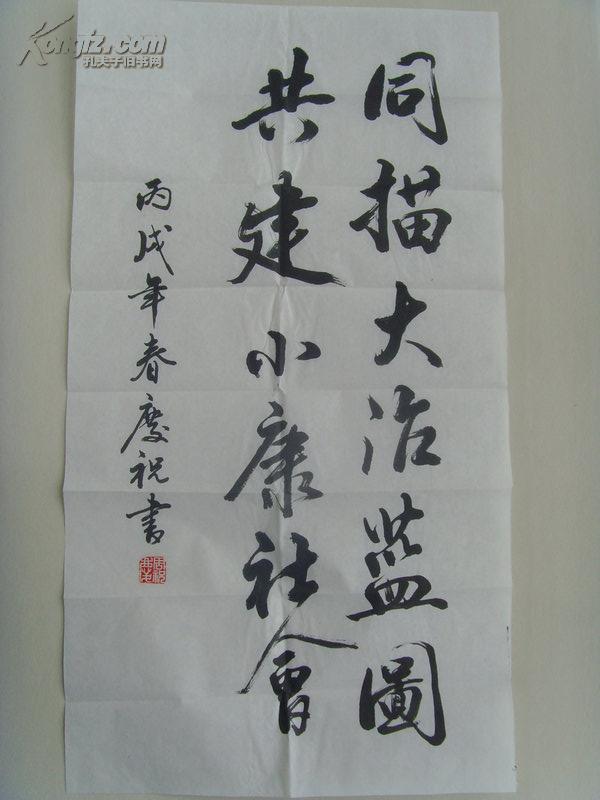 同描大治蓝圖
共建小康社會
丙戌年春慶祝書
Kongfz.com
孔夫子旧书网